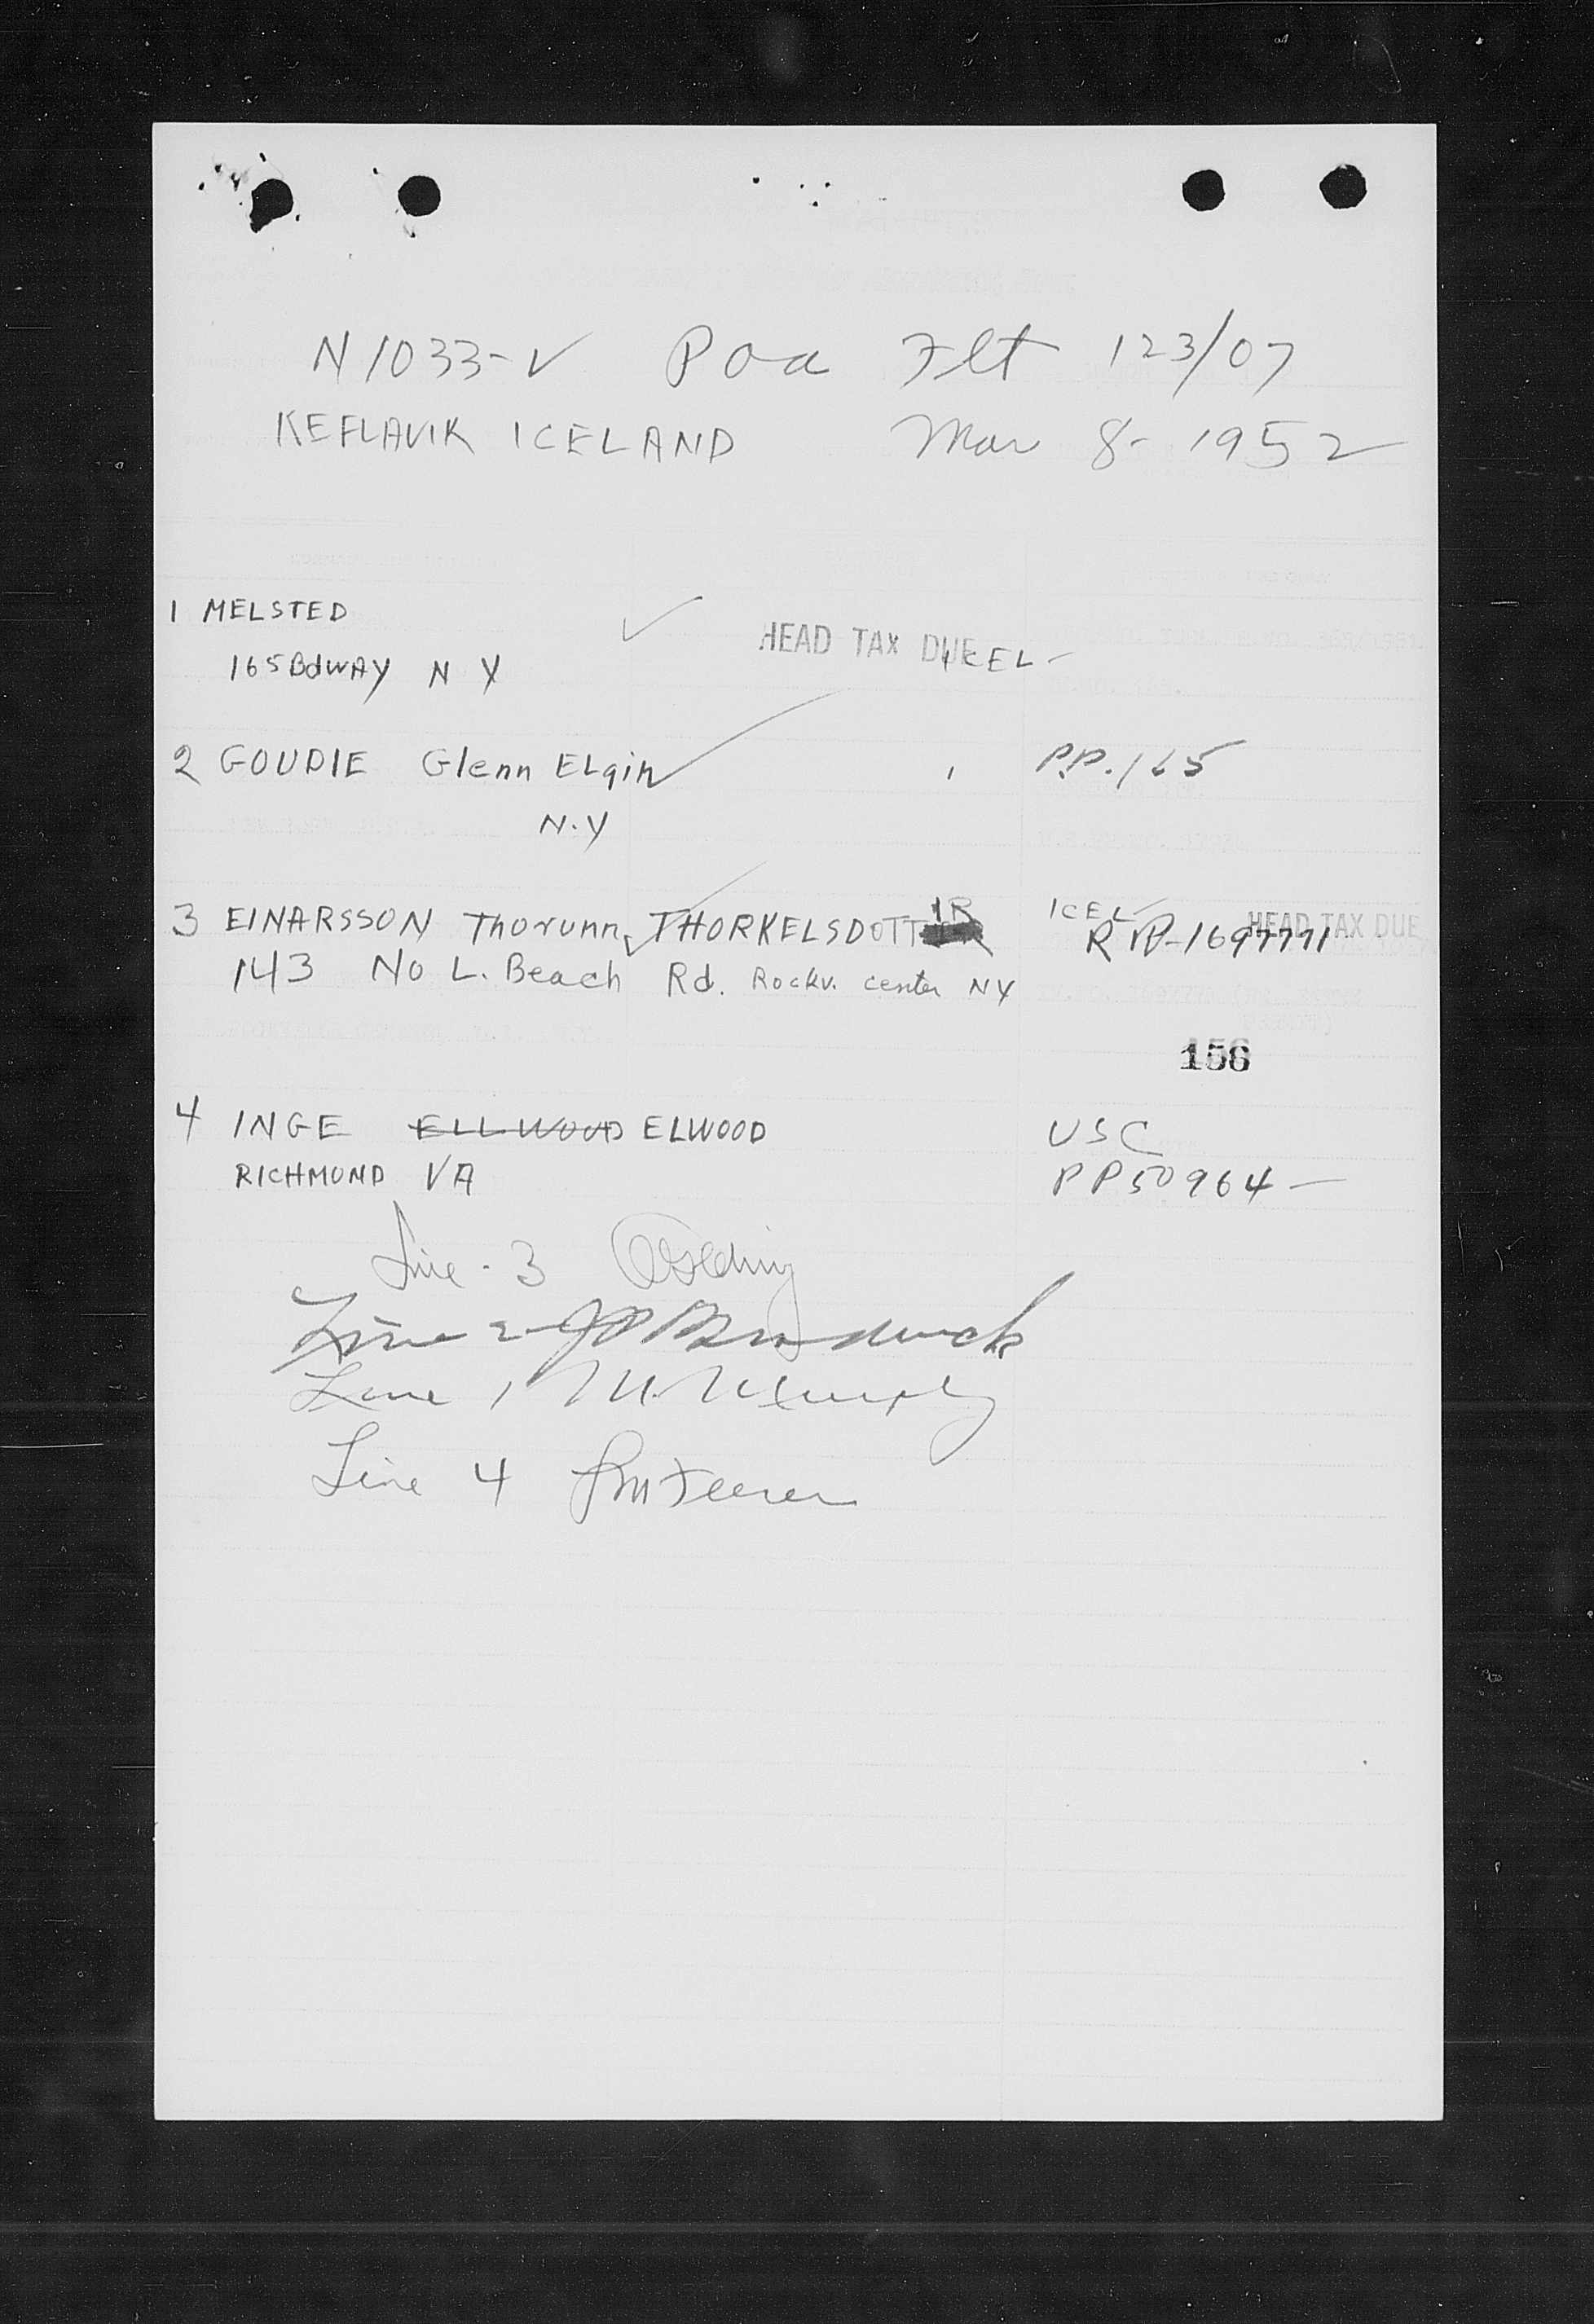 N1033-V Paa Flt 123/07
KEFLAVIK ICELAND Mar 8-1952
1 MELSTED
HEAD TAX DUE
165 BdWAY N Y ICEL-
2 GOUDIE Glenn ELgin P.P.165
N.Y
3 EINARSSON Thorunn, THORKELSDOTTIR ICEL
R P-1697771 HEAD TAX DUE
143 No L. Beach Rd. Rockv. center NY
156
4 INGE ELLWOOD ELWOOD USC
RICHMOND VA PP50964-
Line-3
Line 2
Line 1 Murphy
Line 4